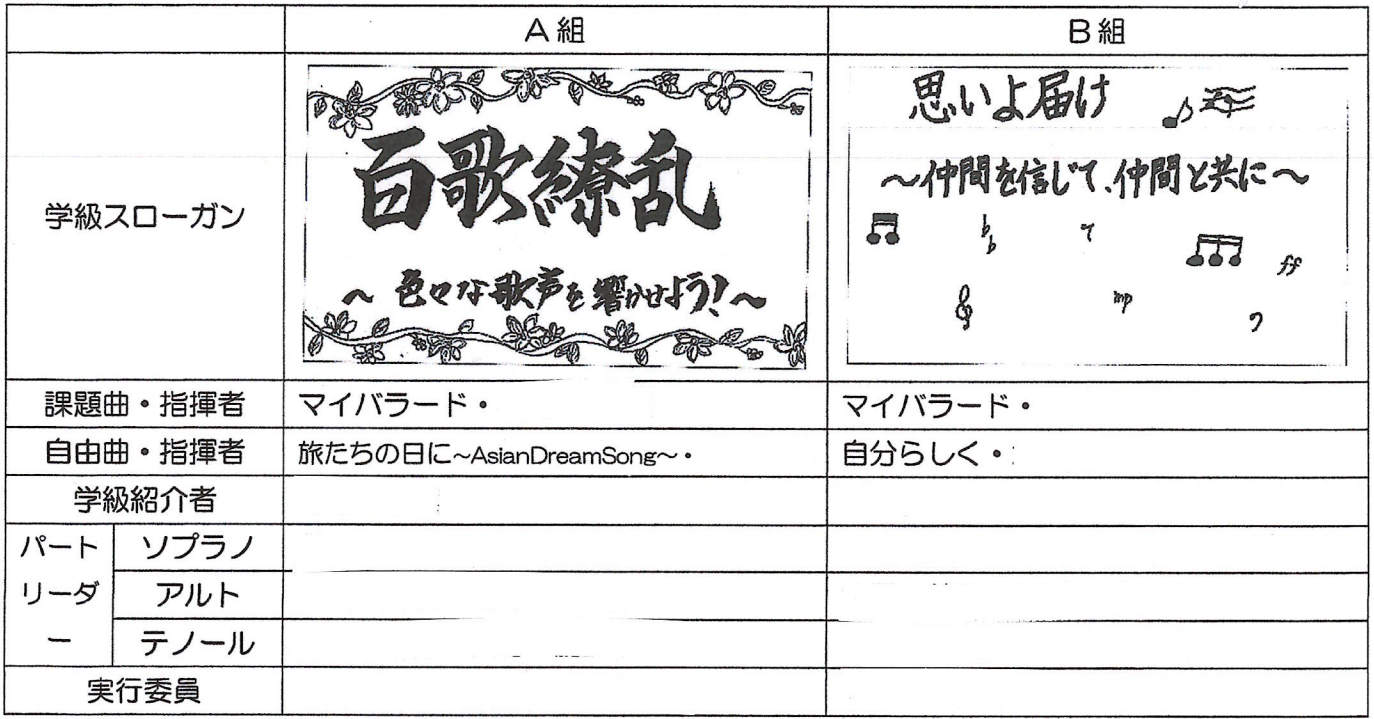 A組 B組
学級スローガン
百歌繚乱
～色々な歌声を響かせよう!～
思いよ届け
～仲間を信じて、仲間と共に～
ff
mp
課題曲・指揮者 マイバラード・ マイバラード・
自由曲・指揮者 旅たちの日に~AsianDreamSong~・ 自分らしく・
学級紹介者
パート ソプラノ
リーダ アルト
ー テノール
実行委員